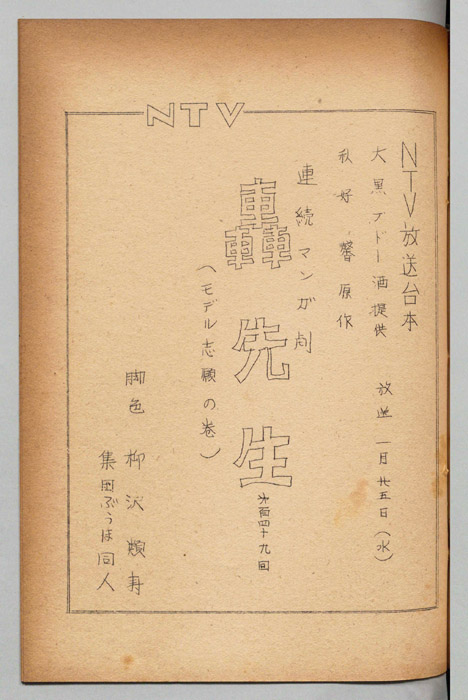 NTV
NTV放送台本
大黒ブドー酒提供 放送 一月廿五日(水)
秋好 馨 原作
連続マンガ劇
轟先生
第百四十九回
(モデル志願の巻)
脚色 柳沢類寿
集団ぶうほ同人